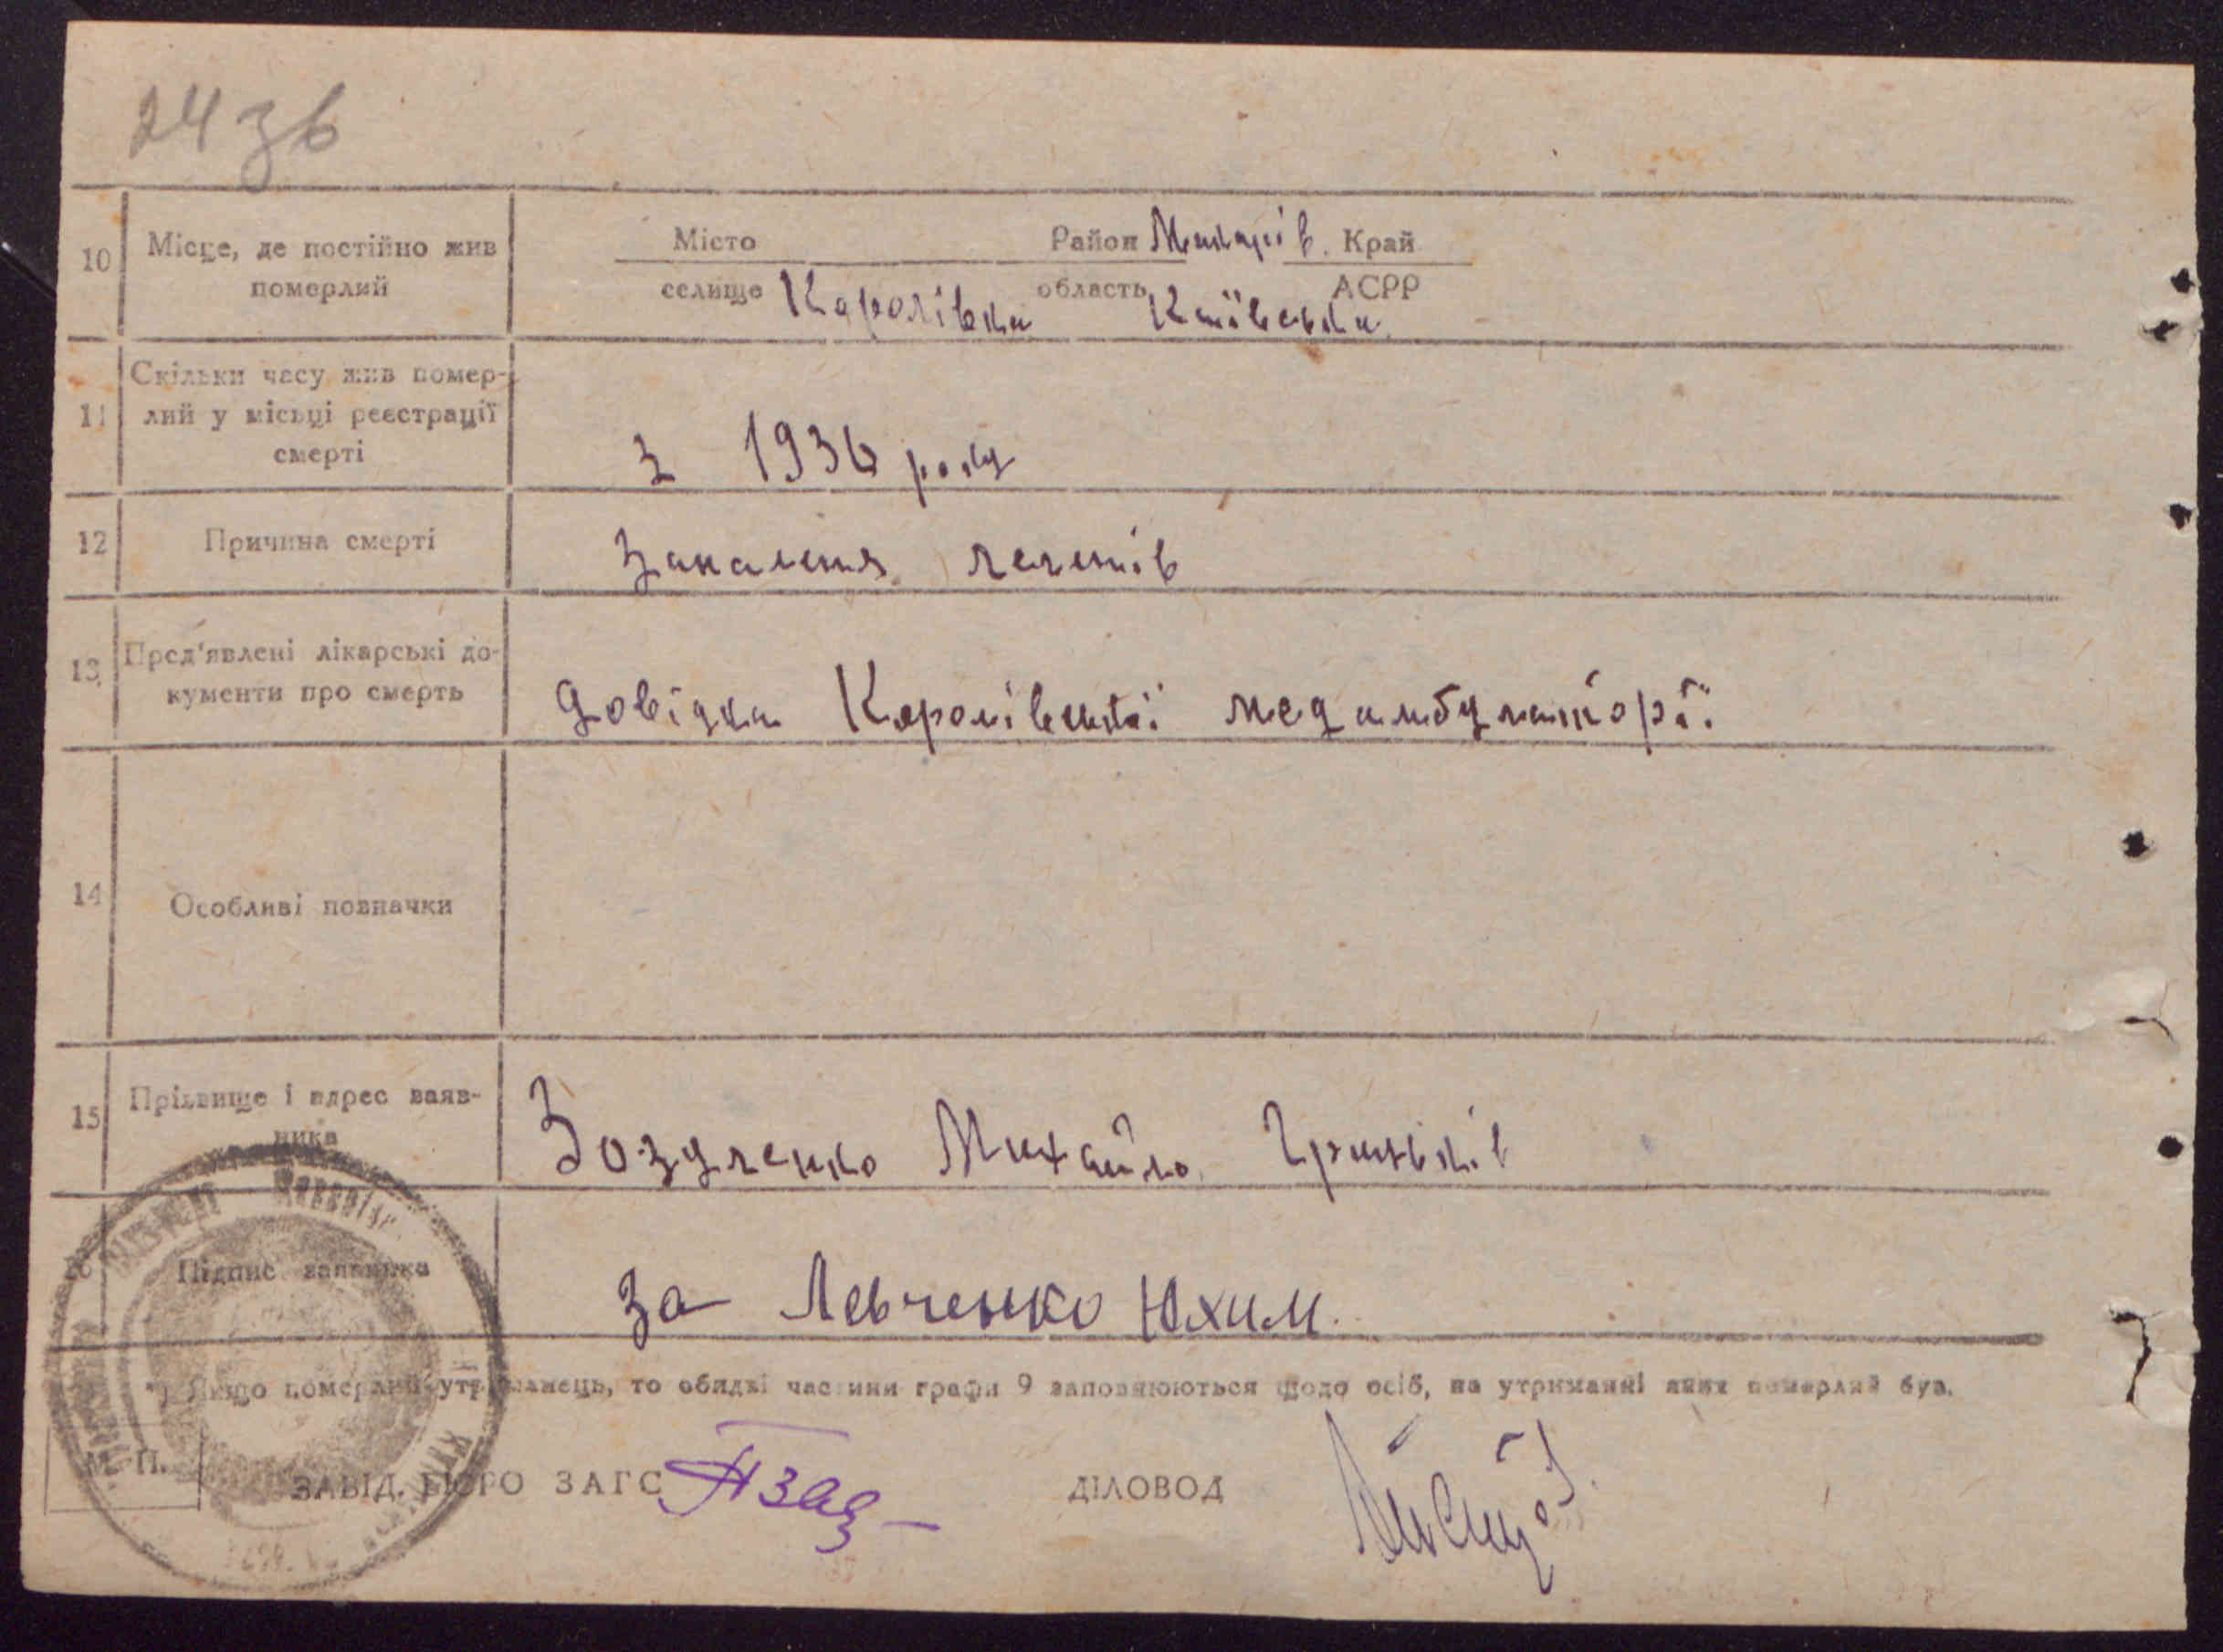 24 зв
10 Місце, де постійно жив померлий
Місто Район Макарів. Край
селище Королівка область Київська АСРР
11 Скільки часу жив помер-
лий у місьці реєстрації
смерті
з 1936 року
12 Причина смерті
Запалення легенів
13 Пред'явлені лікарські до-
кументи про смерть
Довідка Королівської медамбулаторії
14 Особливі позначки
15 Прізвище і адрес заяв-
ника
Зозуленко Михайло Гриньків
16 Підпис заявника
За Левченко Юхим.
*) Якщо померлий утриманець, то обидві частини графи 9 заповнюються щодо осіб, на утриманні яких померлий був.
М. П.
ЗАВІД. БЮРО ЗАГС
ДІЛОВОД